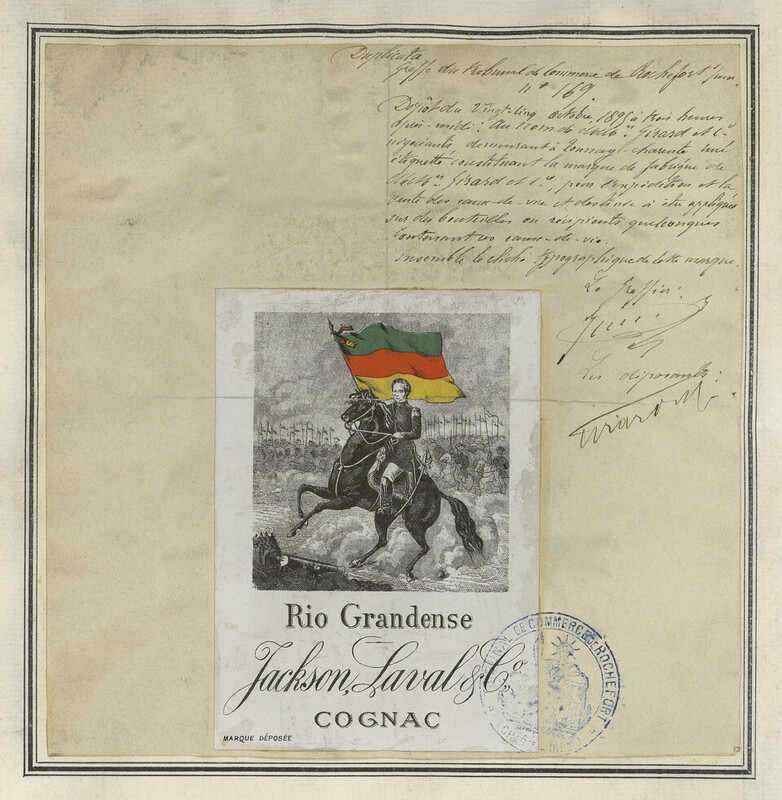 Duplicata
Greffe du tribunal de Commerce de Rochefort s/mer
n° 169.
Dépôt du Vingt-cinq octobre 1895 à trois heures
après-midi : Au nom de Girard et Cie
négociants demeurant à Tonnay-Charente une
étiquette constituant la marque de fabrique de
Girard et Cie, pour l'expédition et la
vente des eaux-de-vie et destinée à être appliquée
sur des bouteilles ou récipients quelconques
contenant ces eaux-de-vie.
ensemble le cliché typographique de cette marque.
Le Greffier :
Les déposants :
Rio Grandense
Jackson, Laval & Co
COGNAC
MARQUE DÉPOSÉE
TRIBUNAL DE COMMERCE DE ROCHEFORT